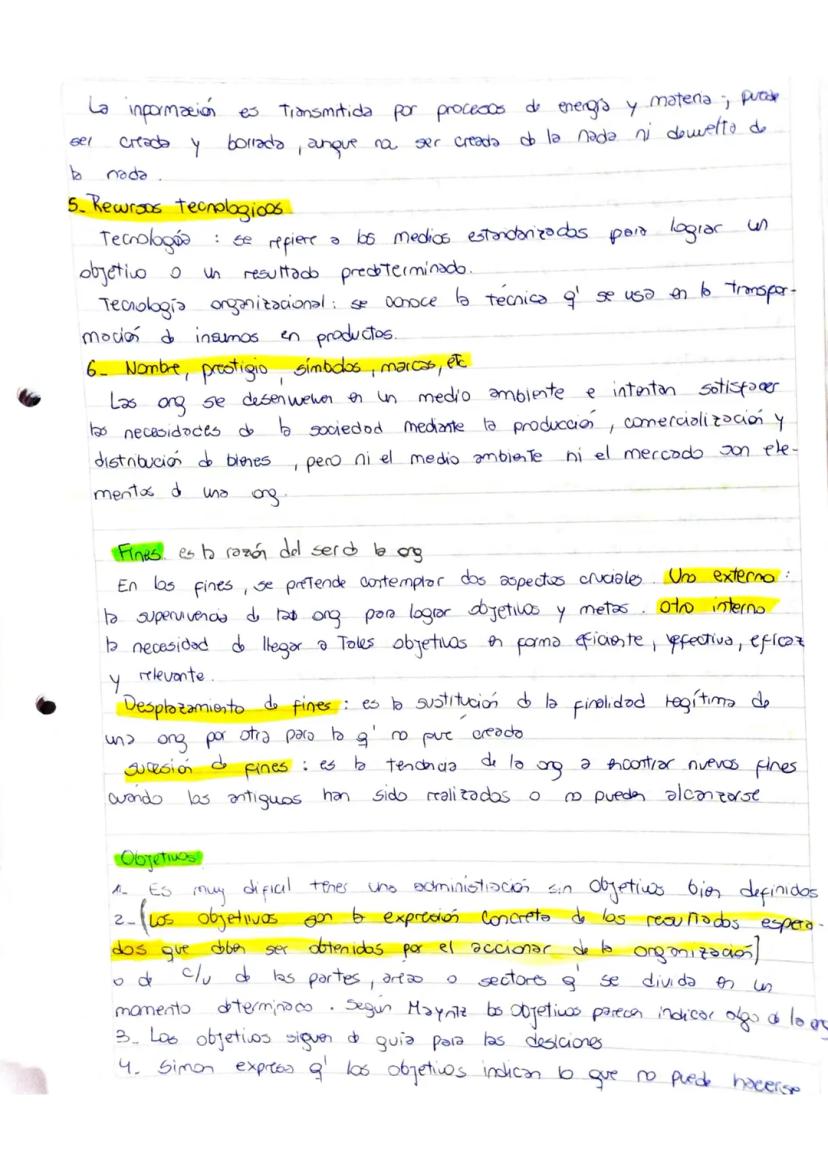 La información es transmitida por procesos de energía y materia; puede
ser creada y borrada, aunque no ser creada d la nada ni devuelta de
la nada.
5_ Recursos tecnologicos
Tecnología : se refiere a los medios estandarizados para lograr un
objetivo o un resultado predeterminado.
Tecnología organizacional: se conoce la técnica q' se usa en la transfor-
mación d insumos en productos.
6_ Nombre, prestigio, símbolos, marcas, etc
Las org se desenvuelven en un medio ambiente e intentan satisfacer
las necesidades de la sociedad mediante la producción, comercialización y
distribución de bienes, pero ni el medio ambiente ni el mercado son ele-
mentos d una org.
Fines. es la razón del ser d la org
En los fines, se pretende contemplar dos aspectos cruciales. Uno externo:
la supervivencia de las org para lograr objetivos y metas. otro interno
la necesidad de llegar a Tales objetivos en forma eficiente, efectiva, eficaz
y relevante.
Desplazamiento de fines : es la sustitución d la finalidad legítima de
una org por otra para la q' no fue creada
sucesión de fines : es la tendencia de la org a encontrar nuevos fines
cuando los antiguos han sido realizados o no pueden alcanzarse
Objetivos
1_ Es muy dificil tener una administración sin objetivos bien definidos
2_ (Los objetivos son la expresión concreta de los resultados espera-
dos que deben ser obtenidos por el accionar de la organización]
o de c/u de las partes, áreas o sectores q' se divida en un
momento determinado. Según Mayntz los objetivos parecen indicar algo d la org
3_ Los objetivos siguen d guía para las desiciones
4_ Simon expresa q' los objetivos indican lo que no puede hacerse